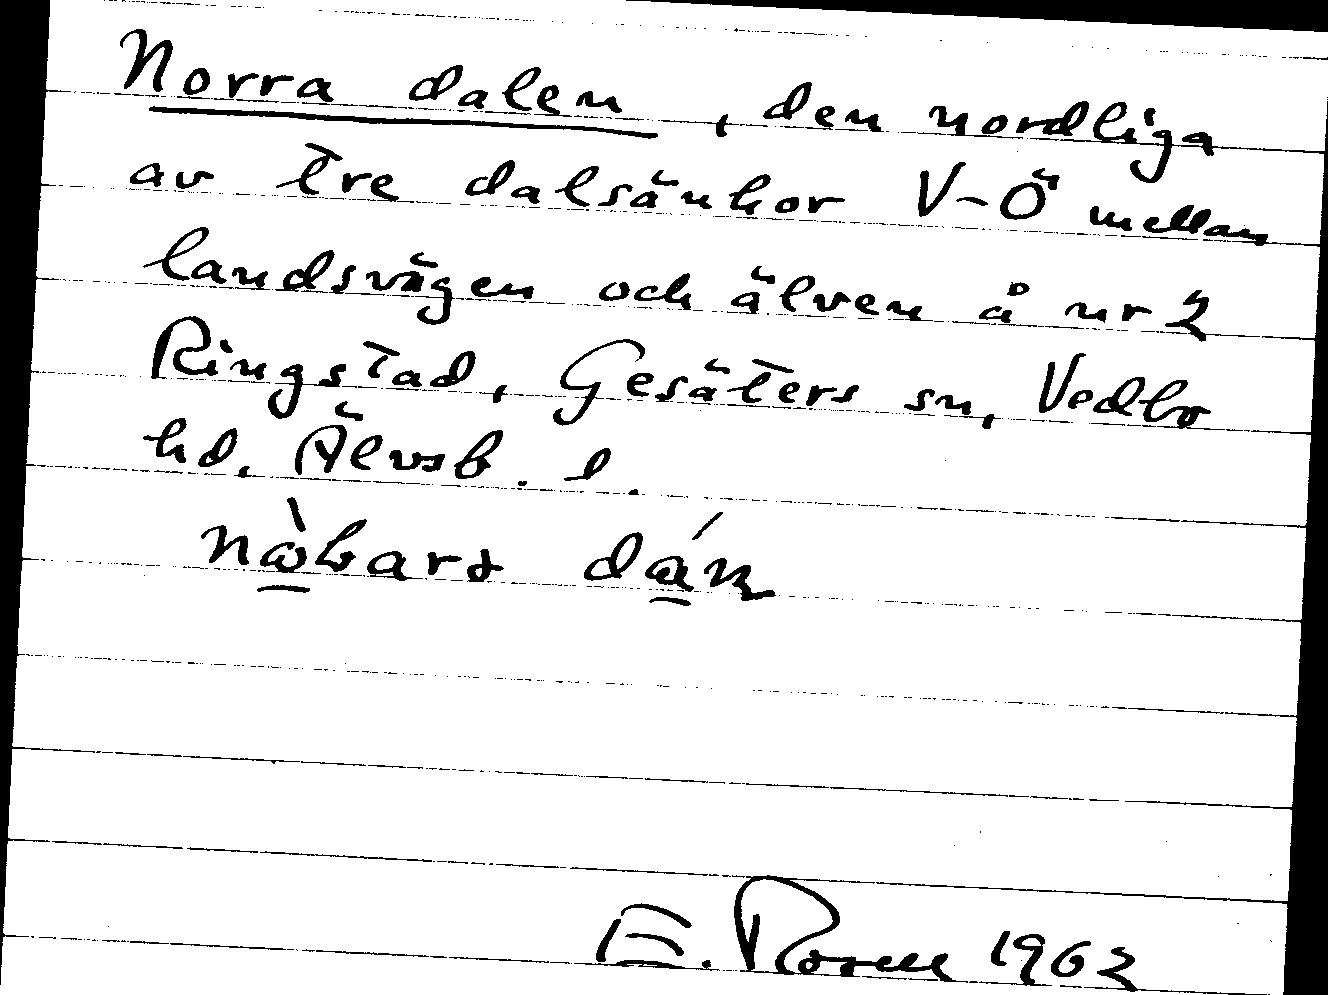 Norra dalen, den nordliga
av tre dalsänkor V-Ö mellan
landsvägen och älven å nr 2
Ringstad, Gesäters sn, Vedbo
hd. Älvsb. l.
E. Rosell 1962